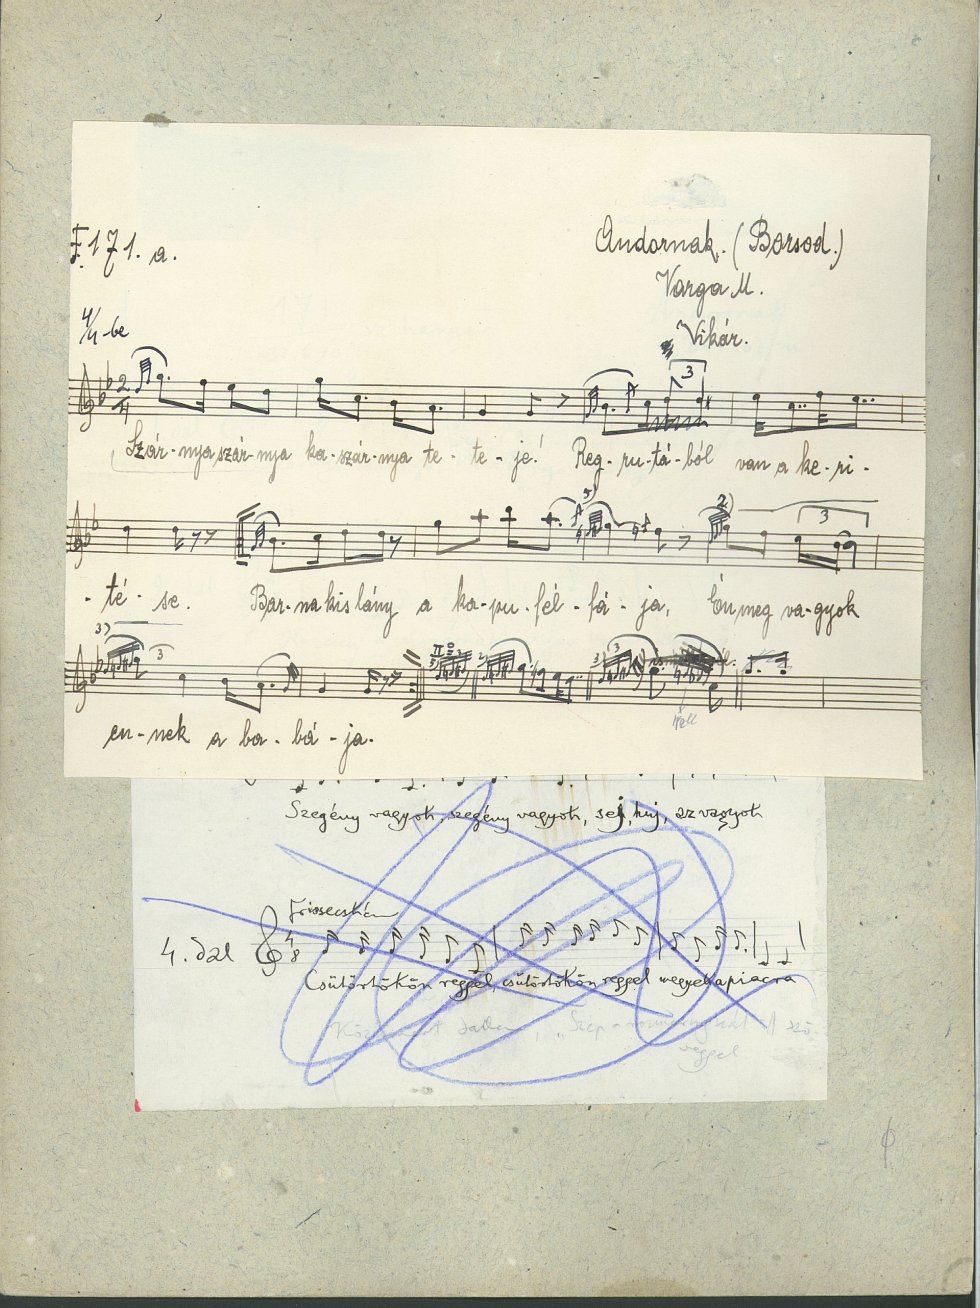 F.171. a.
Andornak. (Borsod.)
Varga M.
Vikár.
4/4-be
3
Szár-nya szár-nya ka-szár-nya te-te-je! Reg-ru-tá-ból van a ke-ri-
5) 2) 3
-té-se. Bar-na kis lány a ka-pu-fél-fá-ja, Én meg va-gyok
3) 3 II 2) 3)
en-nek a ba-bá-ja.
Szegény vagyok, szegény vagyok, sej, huj, az vagyok
Frissecskén
4. dal
Csütörtökön reggel, csütörtökön reggel megyek a piacra
reggel